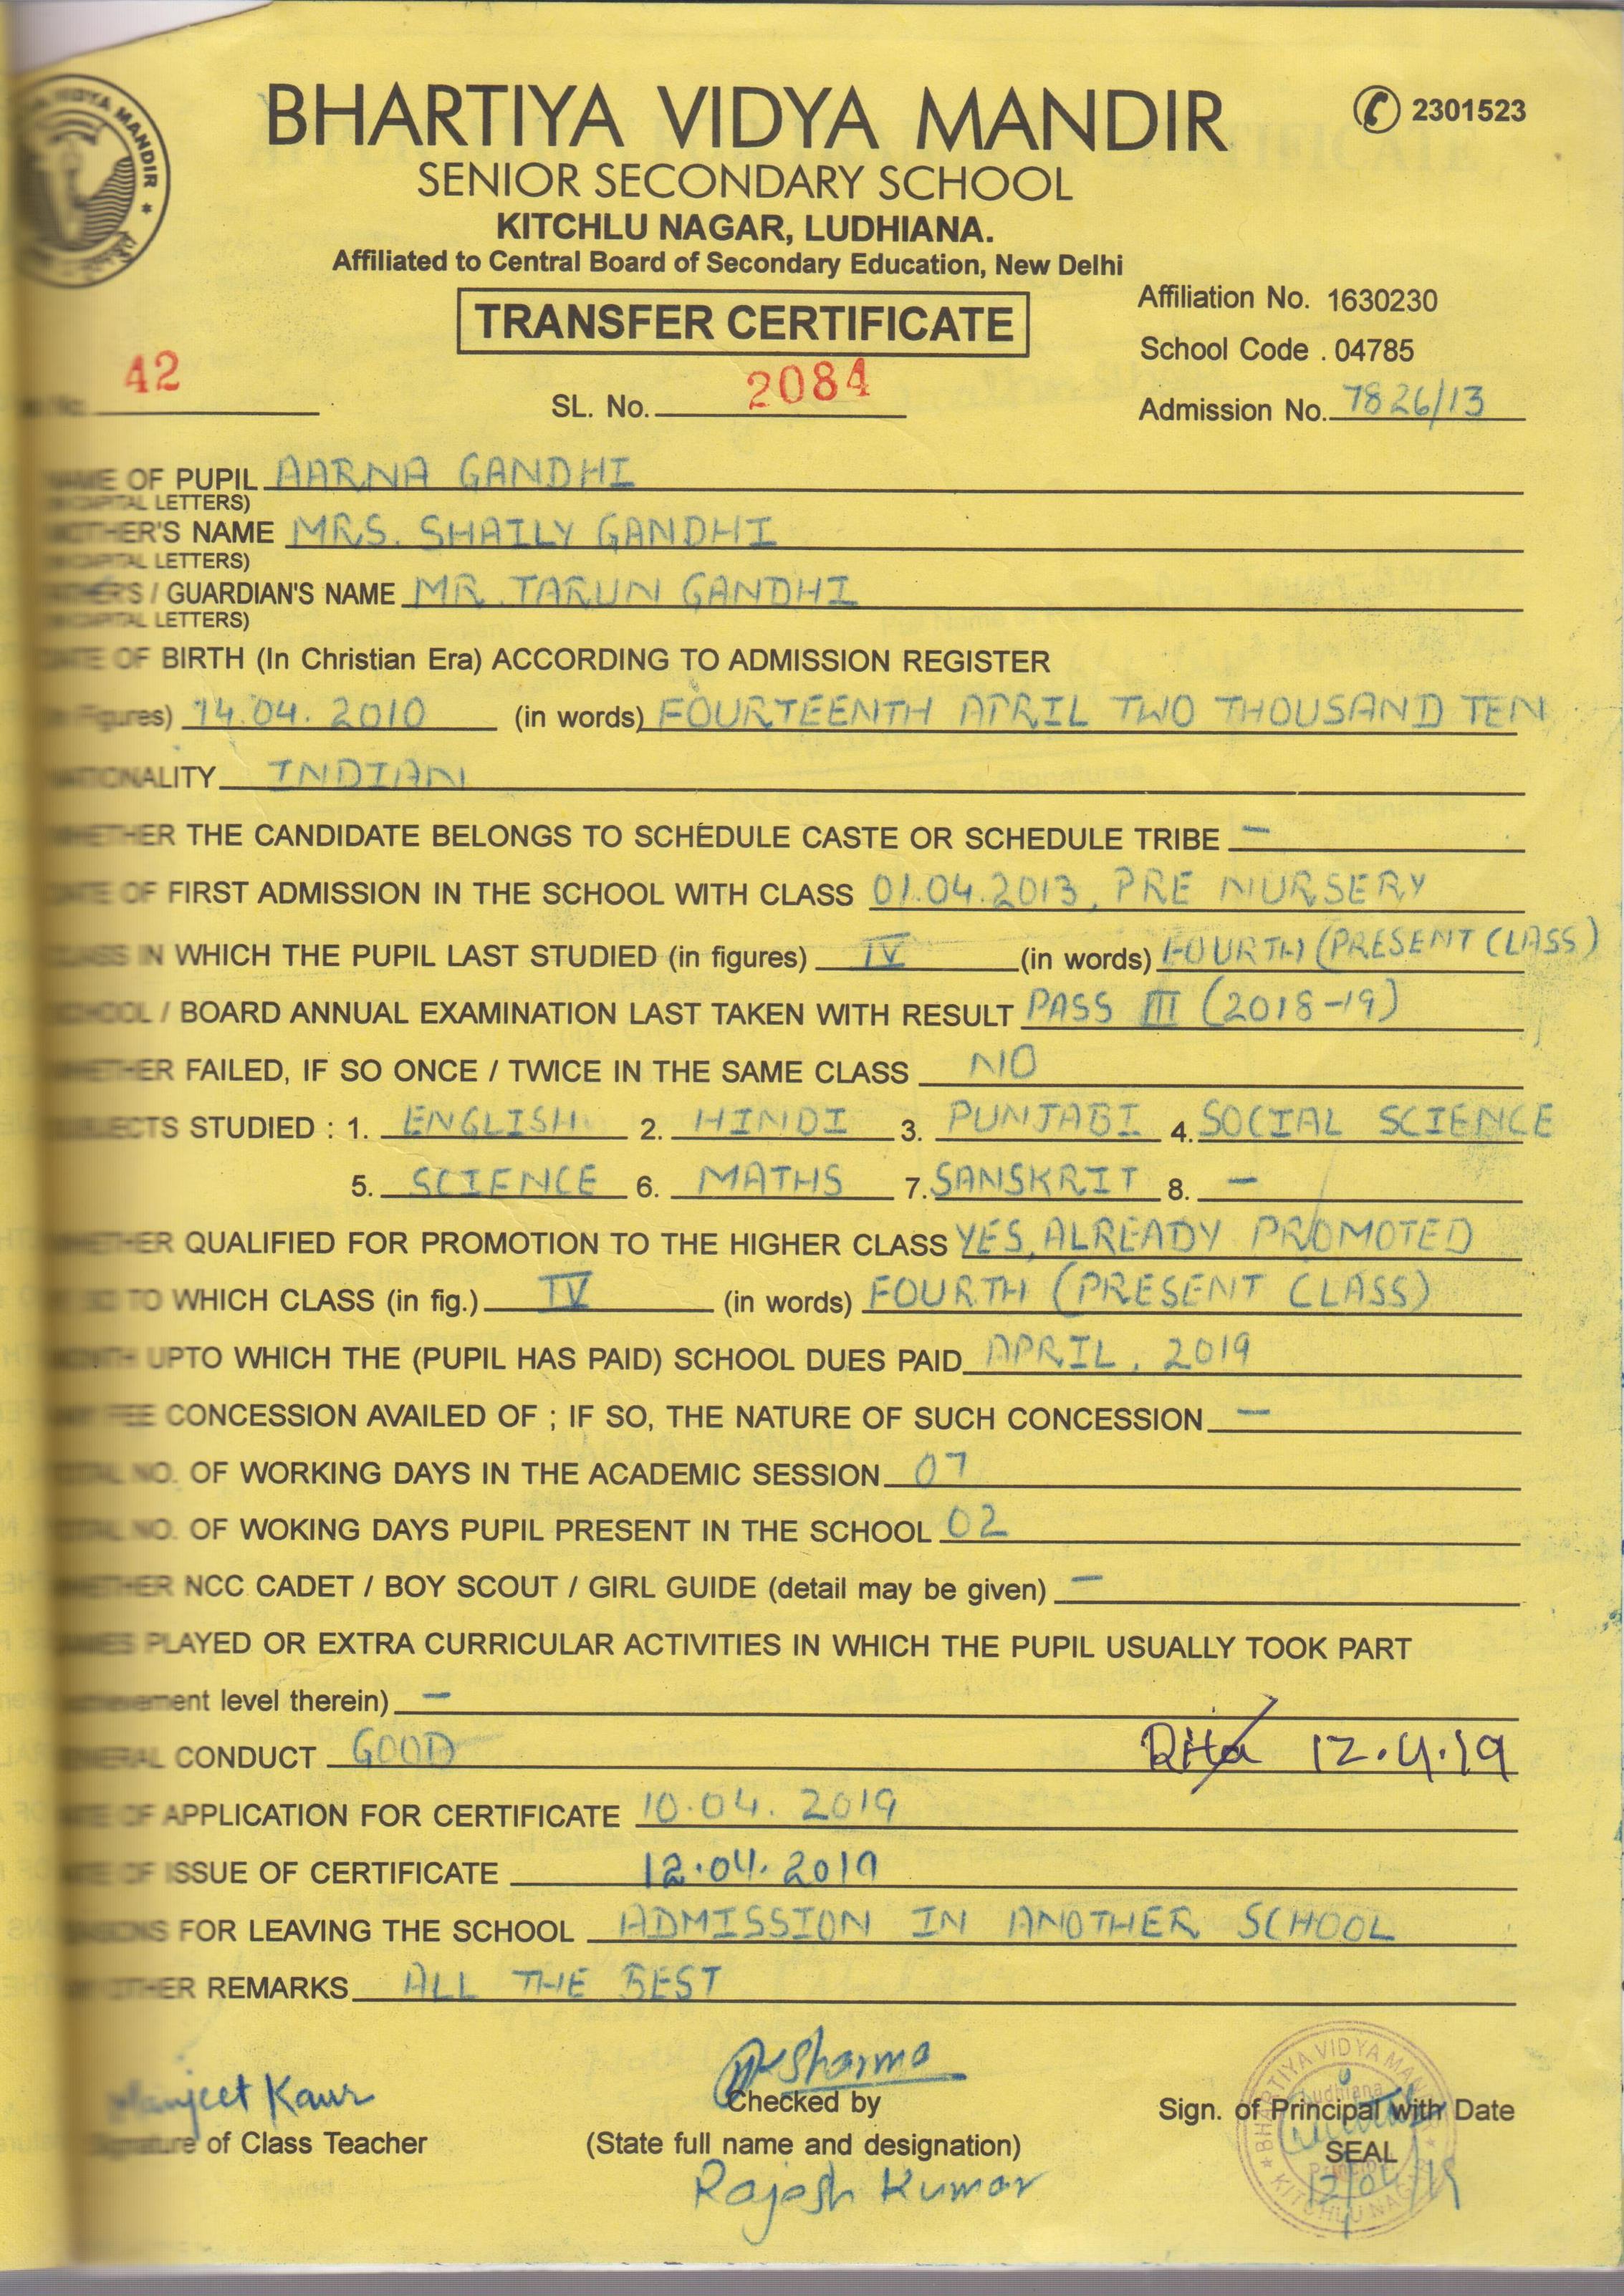 VIDYA MANDIR *
BHARTIYA VIDYA MANDIR
2301523
SENIOR SECONDARY SCHOOL
KITCHLU NAGAR, LUDHIANA.
Affiliated to Central Board of Secondary Education, New Delhi
TRANSFER CERTIFICATE
Affiliation No. 1630230
School Code . 04785
No. 42 SL. No. 2084 Admission No. 7826/13
NAME OF PUPIL AARNA GANDHI
(IN CAPITAL LETTERS)
MOTHER'S NAME MRS. SHAILY GANDHI
(IN CAPITAL LETTERS)
FATHER'S / GUARDIAN'S NAME MR. TARUN GANDHI
(IN CAPITAL LETTERS)
DATE OF BIRTH (In Christian Era) ACCORDING TO ADMISSION REGISTER
(in Figures) 14.04.2010 (in words) FOURTEENTH APRIL TWO THOUSAND TEN
NATIONALITY INDIAN
WHETHER THE CANDIDATE BELONGS TO SCHEDULE CASTE OR SCHEDULE TRIBE –
DATE OF FIRST ADMISSION IN THE SCHOOL WITH CLASS 01.04.2013, PRE NURSERY
CLASS IN WHICH THE PUPIL LAST STUDIED (in figures) IV (in words) FOURTH (PRESENT CLASS)
SCHOOL / BOARD ANNUAL EXAMINATION LAST TAKEN WITH RESULT PASS III (2018-19)
WHETHER FAILED, IF SO ONCE / TWICE IN THE SAME CLASS NO
SUBJECTS STUDIED : 1. ENGLISH 2. HINDI 3. PUNJABI 4. SOCIAL SCIENCE
5. SCIENCE 6. MATHS 7. SANSKRIT 8. –
WHETHER QUALIFIED FOR PROMOTION TO THE HIGHER CLASS YES, ALREADY PROMOTED
IF SO TO WHICH CLASS (in fig.) IV (in words) FOURTH (PRESENT CLASS)
MONTH UPTO WHICH THE (PUPIL HAS PAID) SCHOOL DUES PAID APRIL, 2019
ANY FEE CONCESSION AVAILED OF ; IF SO, THE NATURE OF SUCH CONCESSION –
TOTAL NO. OF WORKING DAYS IN THE ACADEMIC SESSION 07
TOTAL NO. OF WOKING DAYS PUPIL PRESENT IN THE SCHOOL 02
WHETHER NCC CADET / BOY SCOUT / GIRL GUIDE (detail may be given) –
GAMES PLAYED OR EXTRA CURRICULAR ACTIVITIES IN WHICH THE PUPIL USUALLY TOOK PART
achievement level therein) –
GENERAL CONDUCT GOOD Rita 12.4.19
DATE OF APPLICATION FOR CERTIFICATE 10.04.2019
DATE OF ISSUE OF CERTIFICATE 12.04.2019
REASONS FOR LEAVING THE SCHOOL ADMISSION IN ANOTHER SCHOOL
ANY OTHER REMARKS ALL THE BEST
Manjeet Kaur Sharma
Checked by
Signature of Class Teacher (State full name and designation)
Rajesh Kumar
Sign. of Principal with Date
SEAL
12/04/19
* BHARTIYA VIDYA MANDIR * KITCHLU NAGAR
Ludhiana
Principal